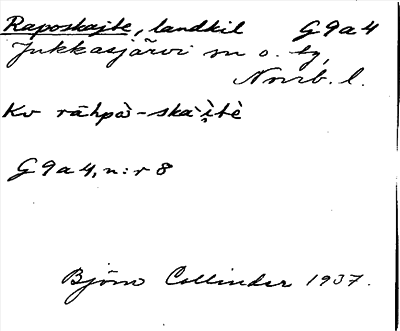 Raposkajte, landkil G9a4
Jukkasjärvi sn o. tg,
Norrb. l.
Kv rāhpȧ̀-skȧi̯tè
G9a4, n:r 8
Björn Collinder 1937.